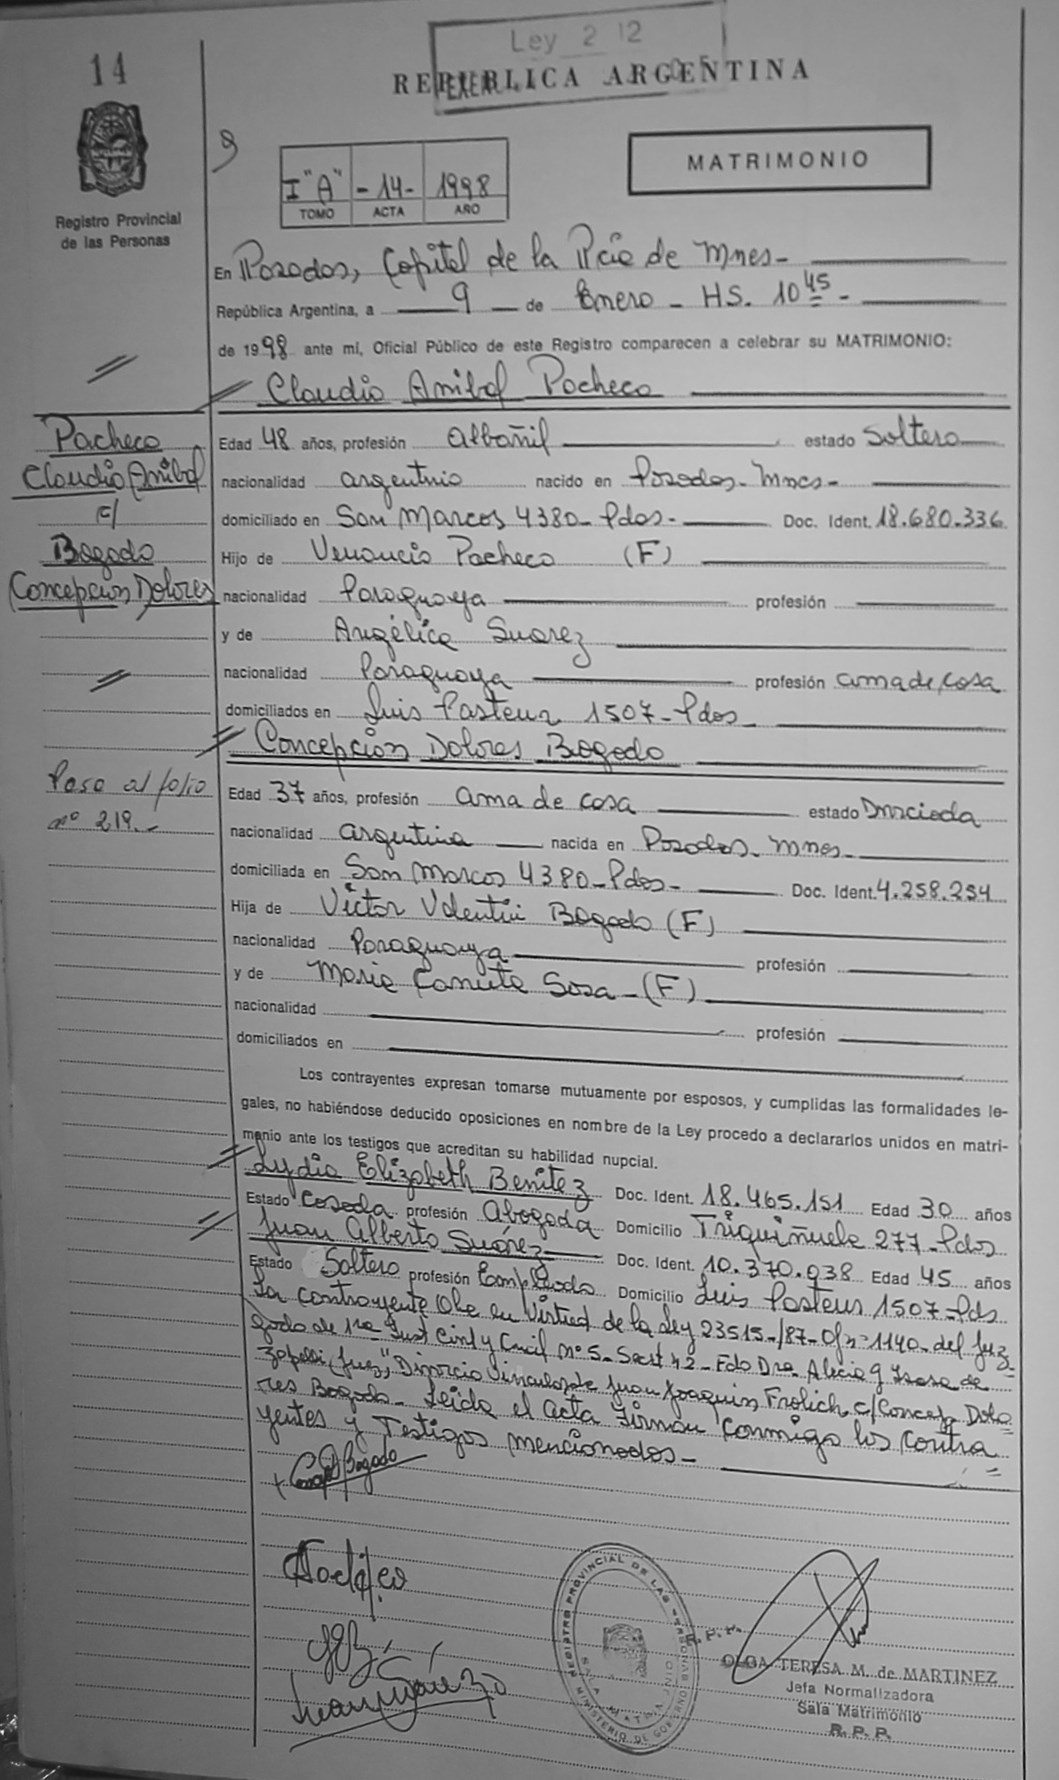 14
Ley 2 12
REPUBLICA ARGENTINA
Registro Provincial
de las Personas
I "A" - 14 - 1998
TOMO ACTA AÑO
MATRIMONIO
En Posadas, Capital de la Pcia de Mnes-
República Argentina, a 9 de Enero - HS. 10 45 -
de 1998 ante mí, Oficial Público de este Registro comparecen a celebrar su MATRIMONIO:
Claudio Anibal Pacheco
Pacheco
Claudio Anibal
c/
Bogado
Concepción Dolores
Edad 48 años, profesión albañil estado Soltero
nacionalidad argentino nacido en Posadas - Mnes -
domiciliado en San Marcos 4380 - Pdas - Doc. Ident. 18.680.336
Hijo de Venancio Pacheco (F)
nacionalidad Paraguaya profesión
y de Angélica Suarez
nacionalidad Paraguaya profesión ama de casa
domiciliados en Luis Pasteur 1507 - Pdas -
Concepción Dolores Bogado
Paso al folio
nº 219.-
Edad 37 años, profesión ama de casa estado Divorciada
nacionalidad argentina nacida en Posadas - Mnes -
domiciliada en San Marcos 4380 - Pdas - Doc. Ident. 4.258.254
Hija de Victor Valentin Bogado (F)
nacionalidad Paraguaya profesión
y de Maria Canuta Sosa - (F)
nacionalidad profesión
domiciliados en
Los contrayentes expresan tomarse mutuamente por esposos, y cumplidas las formalidades le-
gales, no habiéndose deducido oposiciones en nombre de la Ley procedo a declararlos unidos en matri-
monio ante los testigos que acreditan su habilidad nupcial.
Lydia Elizabeth Benitez Doc. Ident. 18.465.151 Edad 30 años
Estado Casada profesión Abogada Domicilio Triquiñuela 277 - Pdas
Juan Alberto Suárez Doc. Ident. 10.370.938 Edad 45 años
Estado Soltero profesión Empleado Domicilio Luis Pasteur 1507 - Pds
La contrayente lo hce en Virtud de la Ley 23515-/87- Of nº 1140- del Juz-
gado de 1ra Inst Civil y Cncial nº 5 - Secrt nº 2 - Fdo Dra. Alicia
(Juez) "Divorcio Vincular de Juan Joaquin Frolich c/ Concep. Dolo
res Bogado - Leida el acta firman conmigo los contra
yentes y Testigos mencionados -
Concep D Bogado
Juan Suárez
REGISTRO PROVINCIAL DE LAS PERSONAS
MINISTERIO DE GOBIERNO
SALA MATRIMONIO
R.P.P.
OLGA TERESA M. de MARTINEZ
Jefa Normalizadora
Sala Matrimonio
R.P.P.